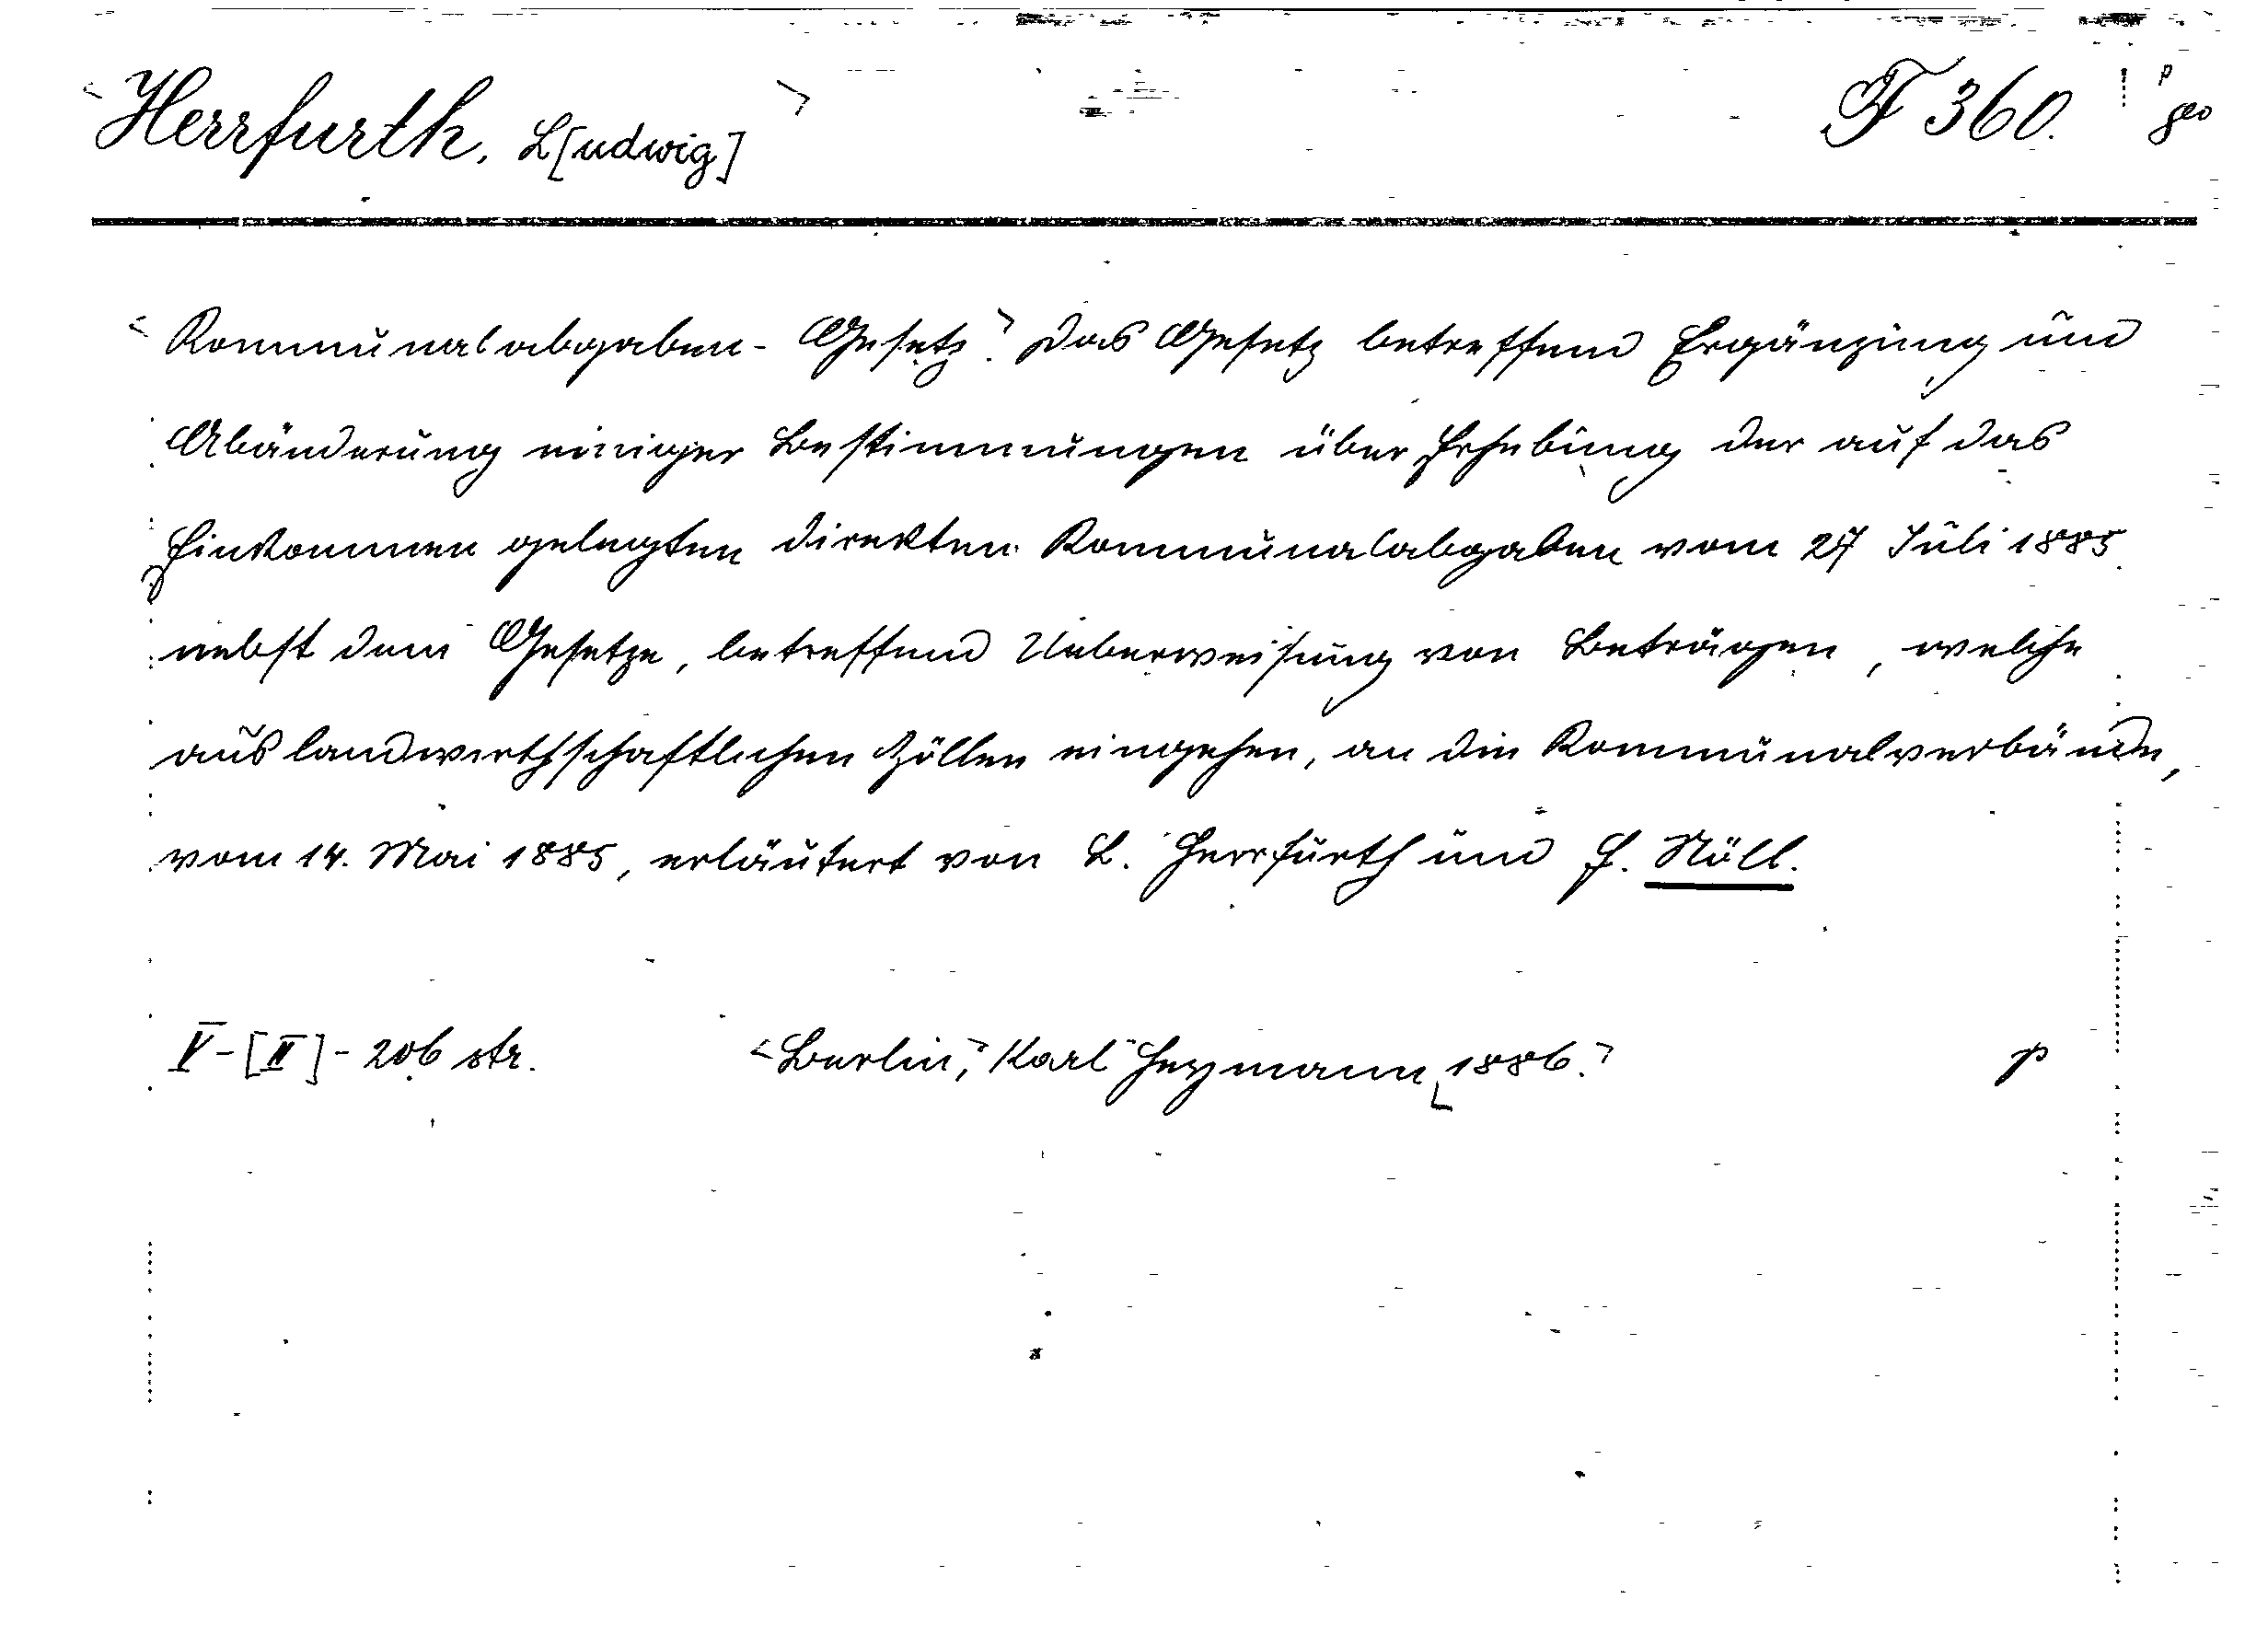 Herrfurth, L[udwig]
F 360.
Kommunalabgaben-Gesetz. Das Gesetz betreffend Ergänzung und
Abänderung einiger Bestimmungen über Erhebung der auf das
Einkommen gelegten direkten Kommunalabgaben vom 27 Juli 1885
nebst dem Gesetze, betreffend Ueberweisung von Beträgen, welche
aus landwirthschaftlichen Zöllen eingehen, an die Kommunalverbände,
vom 14. Mai 1885, erläutert von L. Herrfurth und F. Nöll.
V-[II]-206 str.
Berlin, Karl Heymann, 1886.
p